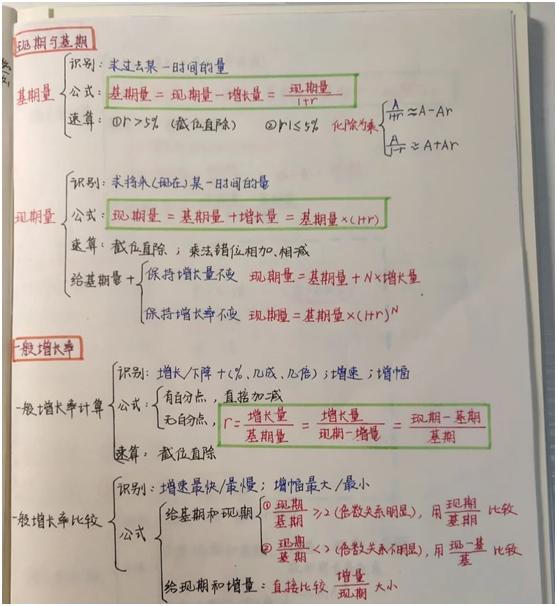 现期与基期
基期量
识别：求过去某一时间的量
公式：基期量 = 现期量 - 增长量 = 现期量/1+r
速算：①r>5%（截位直除） ②|r|≤5% 化除为乘
A/1+r ≈ A-Ar
A/1-r ≈ A+Ar
现期量
识别：求将来（现在）某一时间的量
公式：现期量 = 基期量 + 增长量 = 基期量×(1+r)
速算：截位直除；乘法错位相加、相减
给基期量 +
保持增长量不变 现期量 = 基期量 + N×增长量
保持增长率不变 现期量 = 基期量×(1+r)^N
一般增长率
一般增长率计算
识别：增长/下降 +（%、几成、几倍）；增速；增幅
公式：
有百分点，直接加减
无百分点，r = 增长量/基期量 = 增长量/现期-增量 = 现期-基期/基期
速算：截位直除
一般增长率比较
识别：增速最快/最慢；增幅最大/最小
公式
给基期和现期
①现期/基期 ≥2（倍数关系明显），用 现期/基期 比较
②现期/基期 <2（倍数关系不明显），用 现-基/基 比较
给现期和增量：直接比较 增量/现期 大小